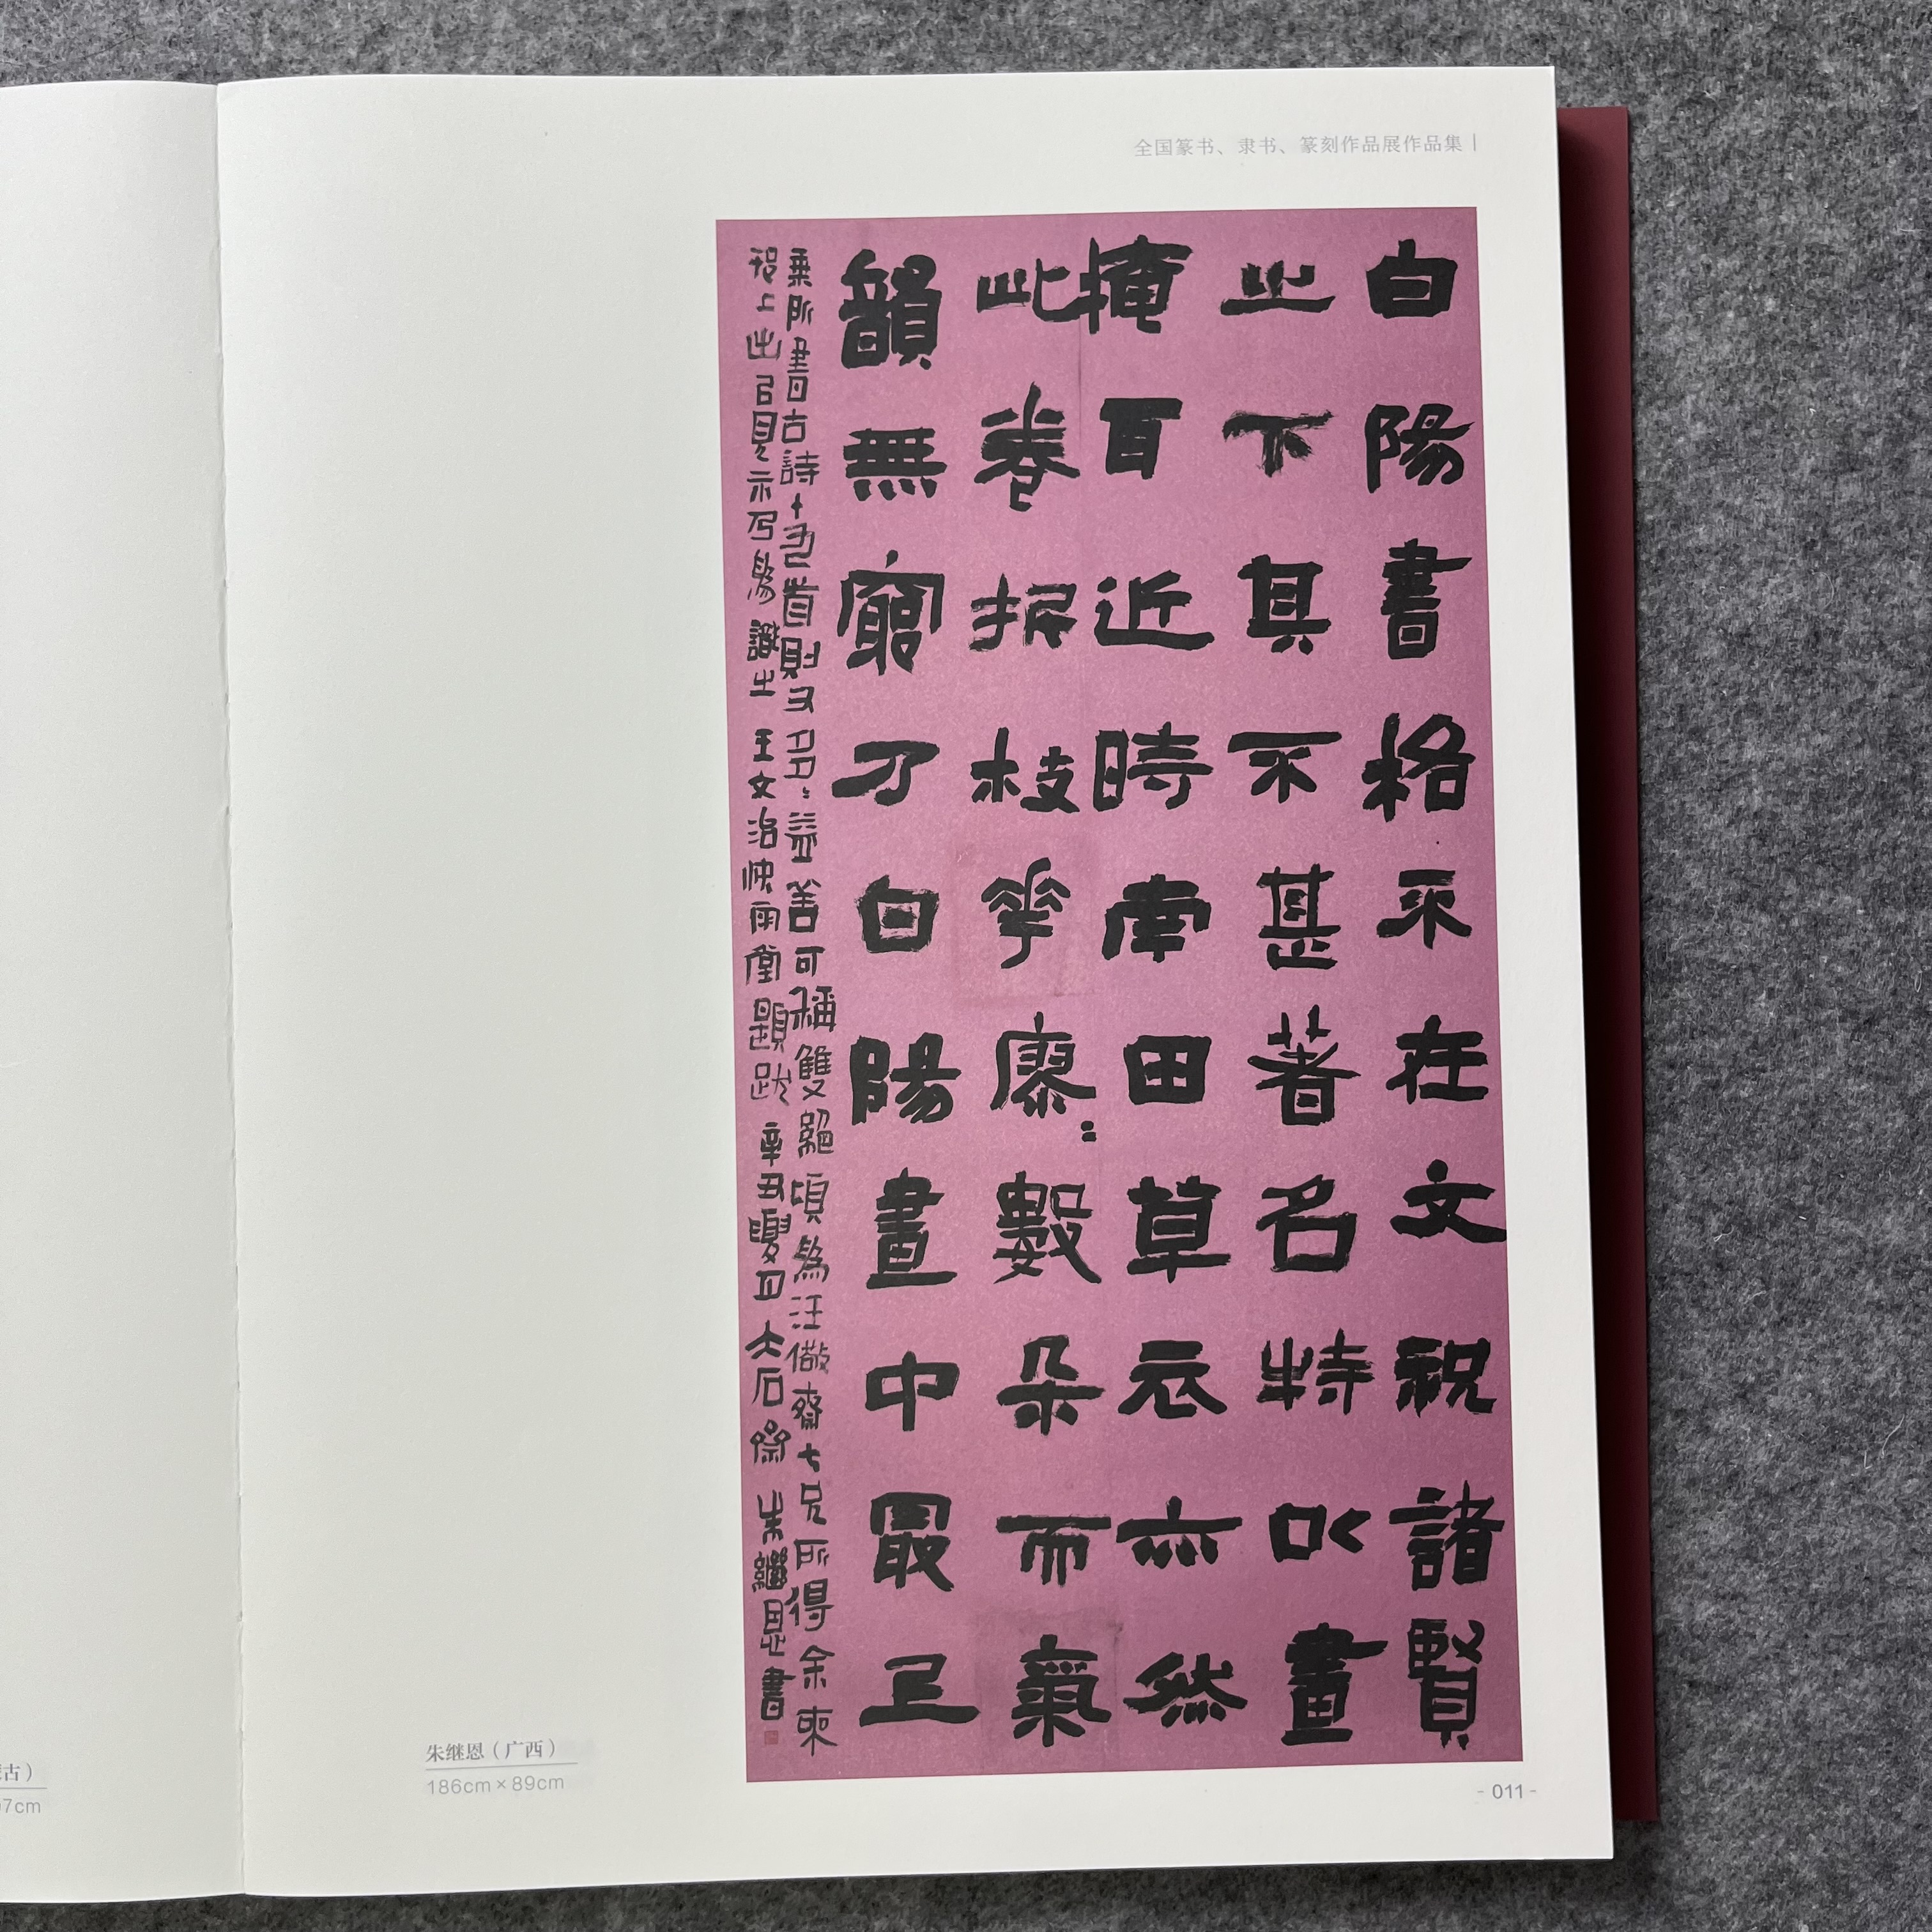 全国篆书、隶书、篆刻作品展作品集
白陽書格不在文祝諸賢
之下其不甚著名特以畫
掩耳近時南田草衣亦然
此卷折枝花廖〻數朵而氣
韻無窮乃白陽畫中最上
乘所書古詩十九首則又多〻益善可稱雙絕頃為汪儆齋七兄所得余來
上出以見示乃為識之 王文治快雨堂題跋 辛丑夏月大石 朱繼恩書
朱继恩（广西）
186cm×89cm
古）
7cm
- 011 -